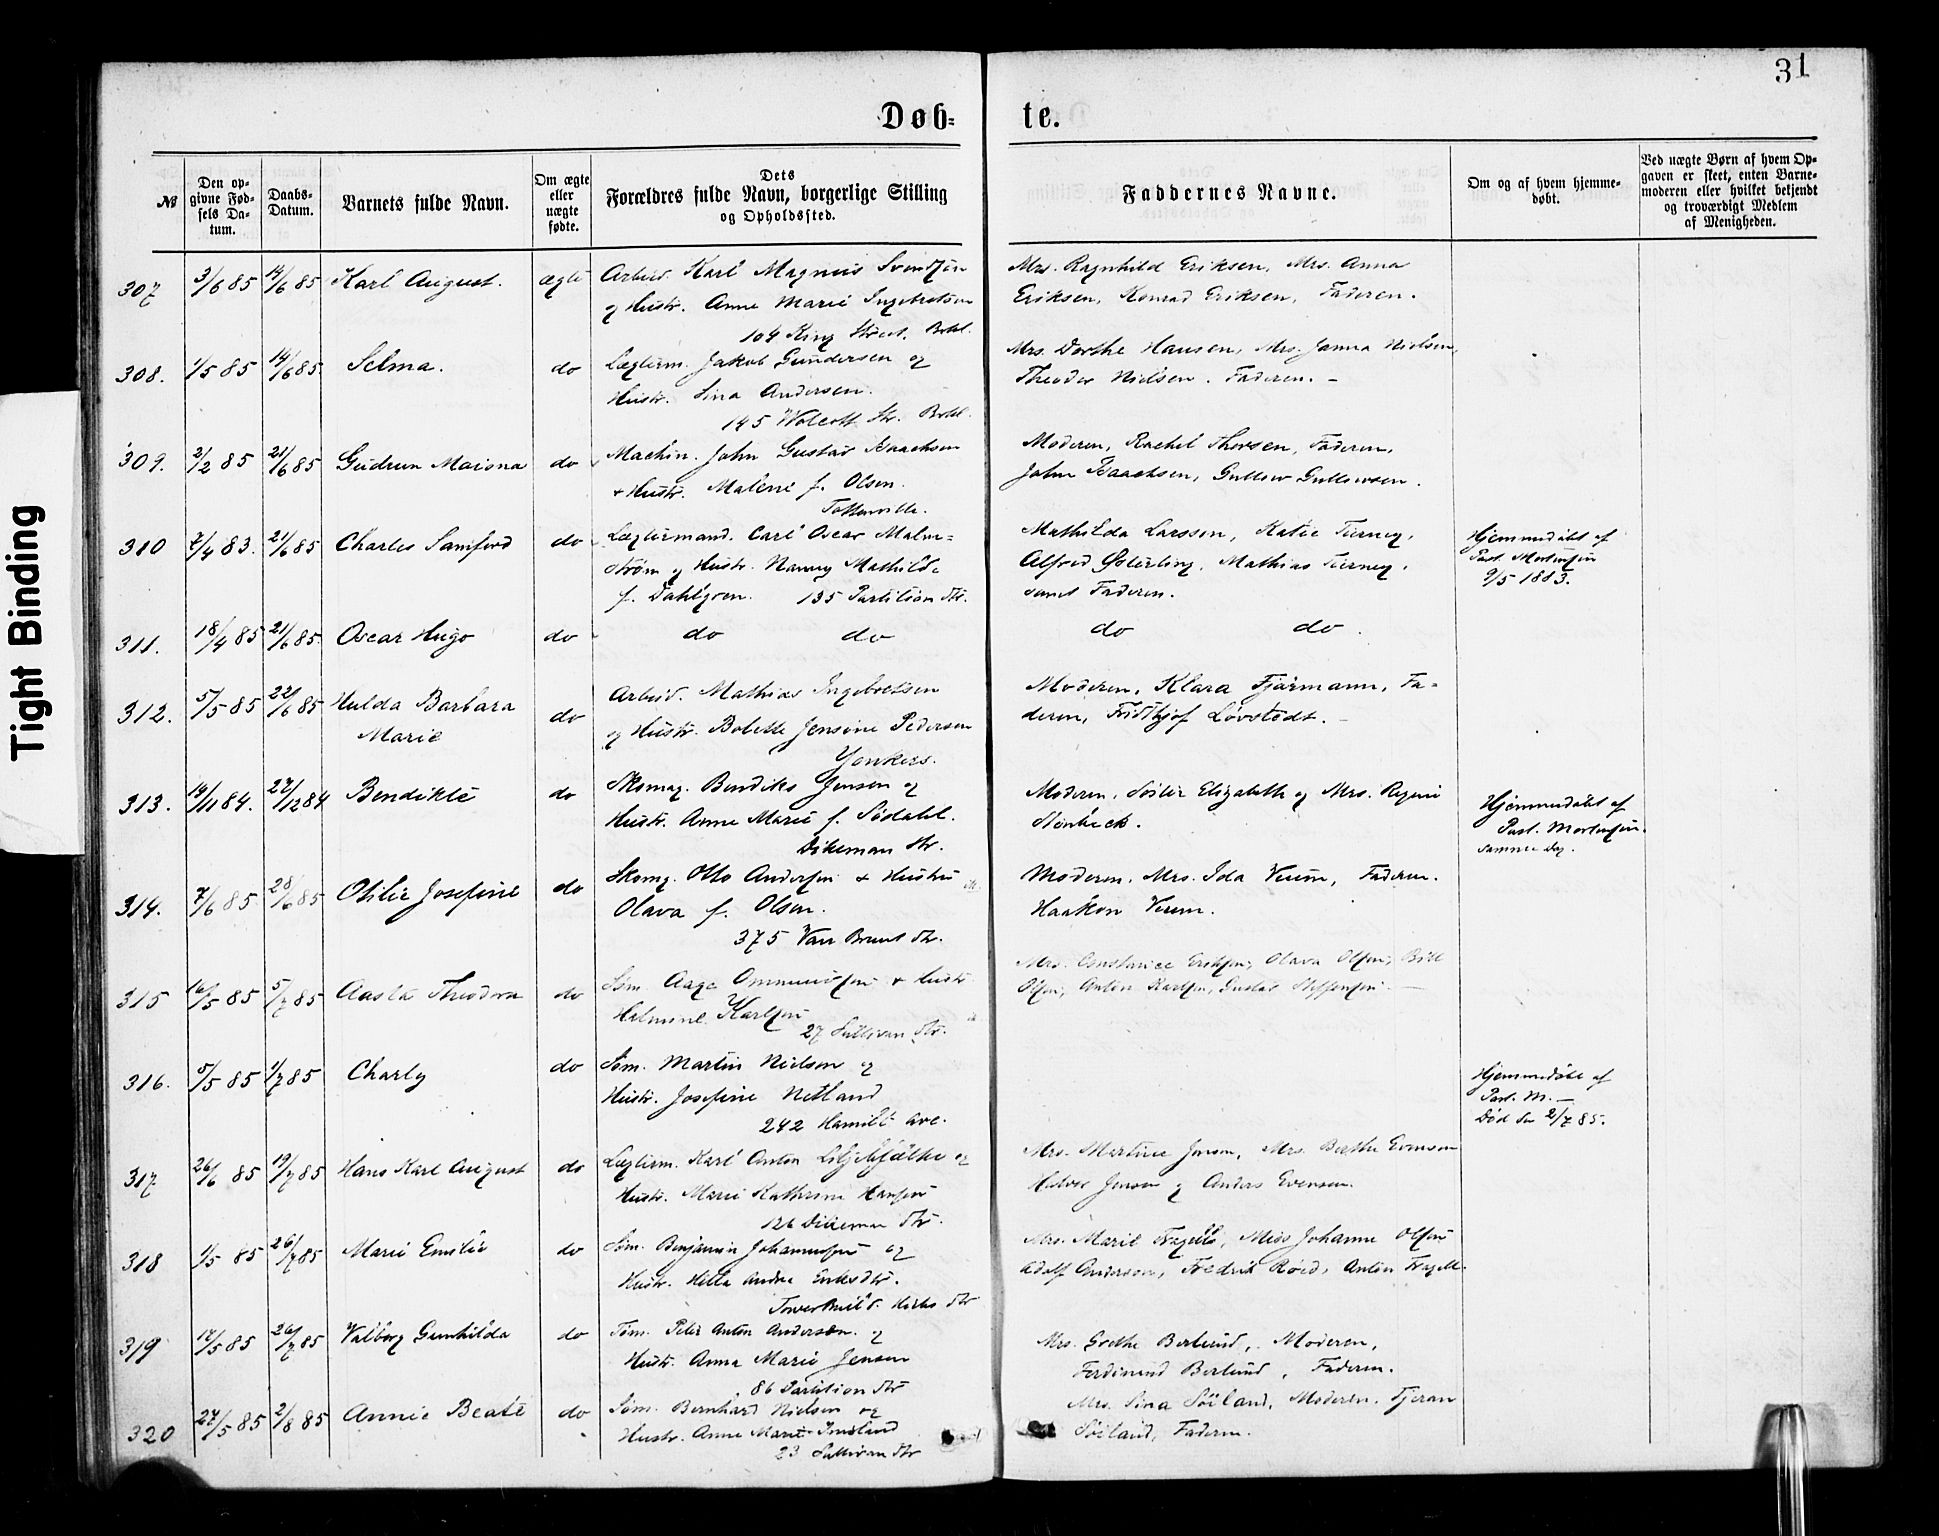 31
Døb-
te.
Tight Binding
№
Den op-
givne Fød-
sels Da-
tum.
Daabs-
Datum.
Barnets fulde Navn.
Om ægte
eller
uægte
fødte.
Dets
Forældres fulde Navn, borgerlige Stilling
og Opholdssted.
Faddernes Navne.
Om og af hvem hjemme-
døbt.
Ved uægte Børn af hvem Op-
gaven er skeet, enten Barne-
moderen eller hvilket bekjendt
og troværdigt Medlem
af Menigheden.
307 3/6 85 14/6 85 Karl August. ægte
Arbeid. Karl Magnus
og Hustr. Anne Marie Ingebretsen
104 King Street. Brkl.
Mrs. Ragnhild Eriksen, Mrs. Anna
Eriksen, Konrad Eriksen, Faderen.
308. 1/5 85 14/6 85 Selma. do
Lægterm. Jakob Gundersen og
Hustr. Sina Andersen.
145 Wolcott Str. Brkl.
Mrs. Dorthe Hansen, Mrs. Janna Nielsen,
Theodor Nielsen. Faderen. —
309. 2/2 85 21/6 85 Gudrun do
Machin. John Gustav Isaachsen
+ Hustr. Malene f. Olsen.
Tottenville.
Moderen, Rachel Thorsen, Faderen,
John Isaachsen, Gullow Gullowsen.
310 7/4 83. 21/6 85 Charles Samford do
Lægtermand. Carl Oscar Malm=
strøm og Hustr. Nanny Mathilde
f. Dahlgren. 135 Partition Str.
Mathilda Larsson, Katie Tierney,
Alfred Østerling, Mathias Tierney,
samt Faderen.
Hjemmedøbt af
Past. Mortensen
9/5 1883.
311. 18/4 85 21/6 85. Oscar Hugo do
do do
do do.
312. 5/5 85 22/6 85 Hulda Barbara
Marie do
Arbeid. Mathias Ingebretsen
og Hustr. Bolette Jensine Pedersen
Yonkers.
Moderen, Klara Fjärmann, Fa=
deren, Fridthjof Løvstedt. —
313. 14/11 84. 27/12 84 Bendikte do
Skomag. Bendiks Jensen og
Hustr. Anne Marie f. Sødahl.
Dikeman Str.
Moderen, Søster Elizabeth og Mrs. Regine
Hjemmedøbt af
Past. Mortensen.
samme Dag.
314. 7/6 85 28/6 85 Otilie Josefine do
Skomg. Otto Andersen + Hustru
Olava f. Olsen.
375 Van Brunt Str.
Moderen, Mrs. Ida Verum, Faderen.
Haakon Verum.
315 16/5 85 5/7 85 Aasta Theodora do
Søm. Aage + Hustr.
Helmine Karlsen
27 Sullivan Str.
Mrs. Constance Eriksen, Olava Olsen,
Olsen, Anton Karlsen, Gustav Steffensen. —
316. 5/5 85 1/7 85 Charly do
Søm. Martin Nielsen og
Hustr. Josefine Netland
242 Hamilt. ave.
Hjemmedøbt af
Past. M. —
Død den 2/7 85.
317 26/6 85 19/7 85 Hans Karl August do
Lægterm. Karl Anton og
Hustr. Marie Kathrine Hansen
126 Dikeman Str.
Mrs. Martine Jensen, Mrs. Berthe Evensen
Halvor Jensen og Anders Evensen.
318 1/5 85 26/7 85 Marie Emilie do
Søm. Benjamin Johannesen og
Hustr. Andrea
Tower Build. Hicks Str
Mrs. Marie Miss Johanne Olsen
Adolf Anderson, Fredrik Røed, Anton
319 17/5 85 26/7 85 Valborg Gunhilda do
Tøm. Peter Anton Andersen og
Hustr. Anna Marie Jensen
86 Partition Str
Mrs. Grethe Berlund, Moderen,
Ferdinand Berlund, Faderen.
320 27/5 85 2/8 85 Annie Beate do
Søm. Bernhard Nielsen og
Hustr. Anne Marie
23 Sullivan Str
Mrs. Sina Søiland, Moderen. Tjeran
Søiland, Faderen.